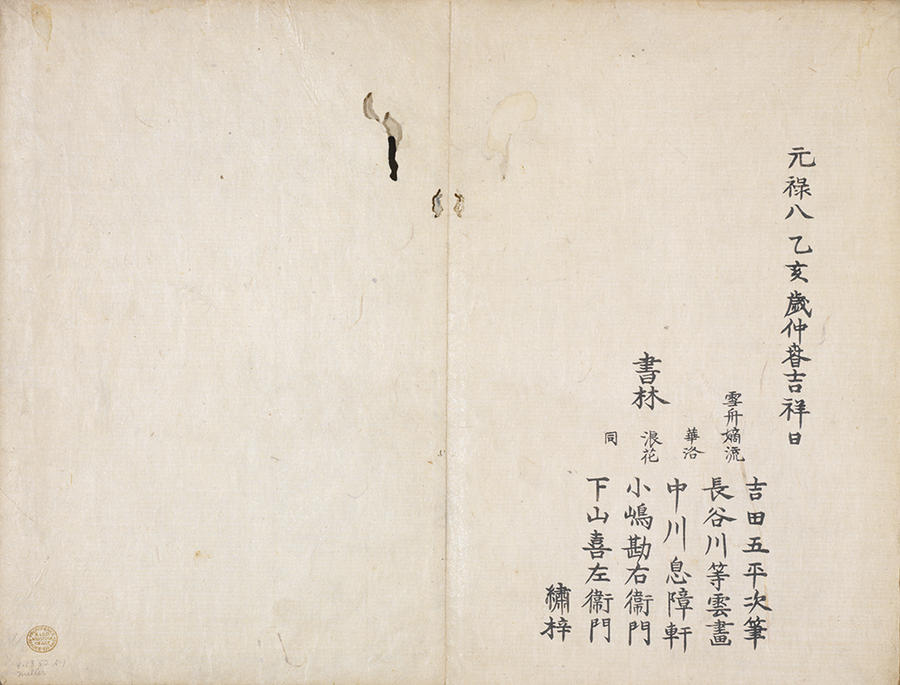 元祿八乙亥歲仲春吉祥日
吉田五平次筆
雪舟嫡流
長谷川等雲畫
華洛
中川息障軒
書林
浪花
小嶋勘右衞門
同
下山喜左衞門
繡梓